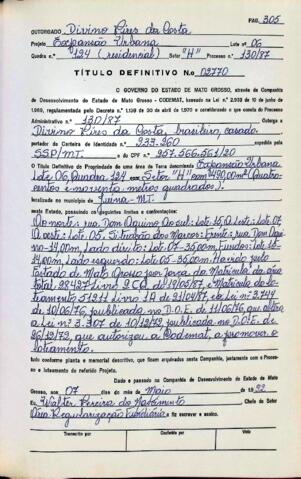 PAG. 305
OUTORGADO Divino Pires da Costa
Projeto Expansão Urbana Lote nº 06
Quadra n.º 124 (residencial) Setor "H" Processo n.º 130/87
TÍTULO DEFINITIVO N.o 02770
O GOVERNO DO ESTADO DE MATO GROSSO, através da Companhia
de Desenvolvimento do Estado de Mato Grosso - CODEMAT, baseado na Lei n.º 2.939 de 10 de junho de
1969, regulamentado pelo Decreto n.º 1.138 de 20 de abril de 1970 e considerando o que consta do Processo
Administrativo n.º 130/87 Outorga a
Divino Pires da Costa, brasileiro, casado
portador da Carteira de Identidade n.º 233.960 expedido por
SSP/MT. e do CPF n.º 957.566.561/20
o Título Definitivo de Propriedade de uma área de terras denominada Expansão Urbana
Lote 06, Quadra 124 com Setor "H" com 490,00m² (Quatro-
centos e noventa metros quadrados).
localizada no município de Juina - MT.
neste Estado, possuindo os seguintes limites e confrontações:
Ao norte: rua Dom Aquino Ao sul: lote 15, A leste: lote 07
A oeste: lote 05. Situação dos Marcos: Frente: rua Dom Aqui-
no-14,00m, Lado direito: lote 07-35,00m, Fundos: lote 15-
14,00m, Lado esquerdo: lote 05-35,00m. Havido pelo
Estado de Mato Grosso por força da Matrícula da área
total 28427 livro 2 CQ de 19/05/87, e Matrícula do lo-
teamento 51211 livro 1A de 21/04/87, da Lei nº 3.744
de 10/06/76, publicada no D.O.E. de 11/06/76, que altera
a Lei nº 3.307 de 10/12/72, publicada no D.O.E. de
26/12/72, que autorizou a Codemat, a promover o
loteamento.
tudo conforme planta e memorial descritivo, que ficam arquivados nesta Companhia, juntamente com o Proces-
so e loteamento do referido Projeto.
Dado e passado na Companhia de Desenvolvimento do Estado de Mato
Grosso, aos 07 dias do mês de Maio de 1.992
Eu, Walter Pereira do Nascimento Chefe do Setor
De Regularização Fundiária a fiz escrever e assino.
Transcrito por Conferido por Visto